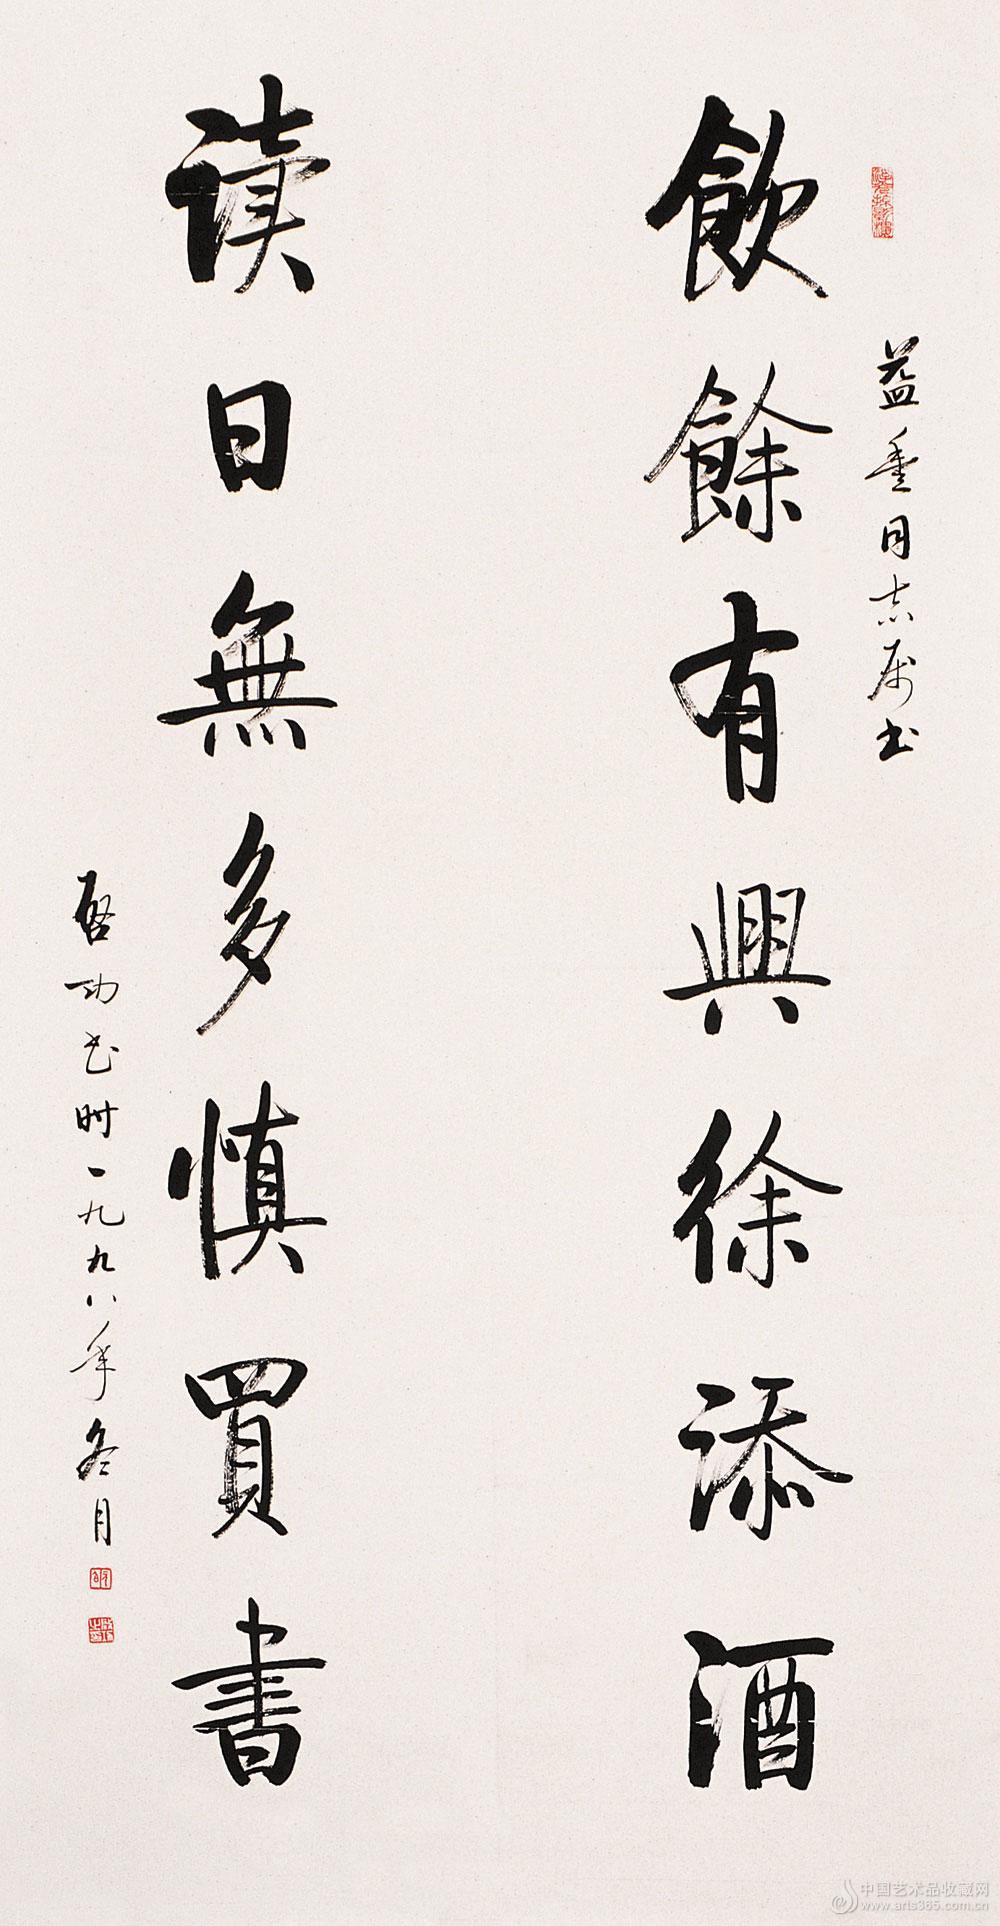 益垂同志属书
飲餘有興徐添酒
读日無多慎買書
啓功书时一九九八年冬月
中国艺术品收藏网
www.arts365.com.cn